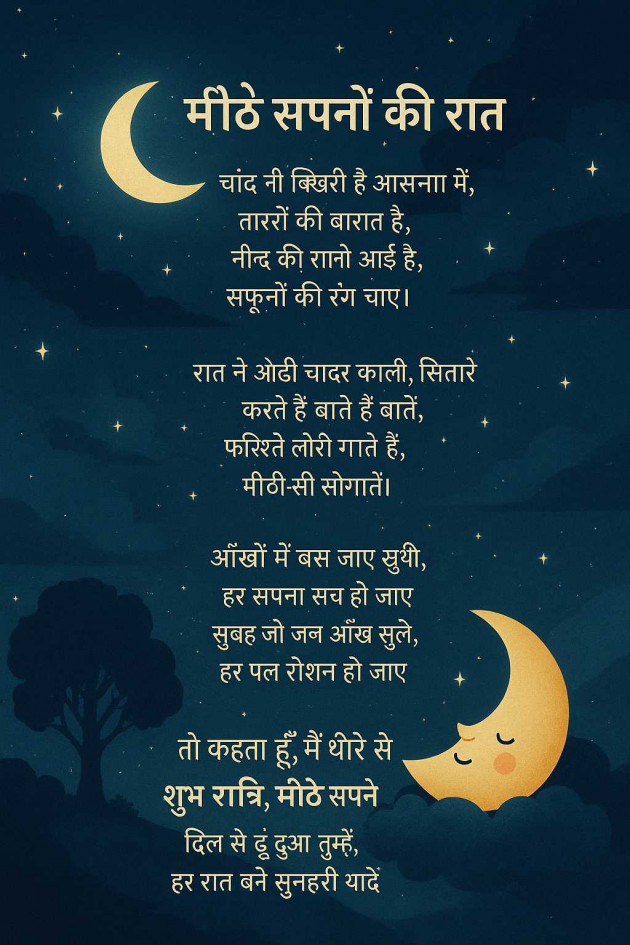 मीठे सपनों की रात
चांद नी बिखिरी है आसनाा में,
ताररों की बारात है,
नीन्द की़ राानो आई है,
सफूनों की रंग चाए।
रात ने ओढी चादर काली, सितारे
करते हैं बाते हैं बातें,
फरिश्ते लोरी गाते हैं,
मीठी-सी सोगातें।
आँखों में बस जाए स्रुथी,
हर सपना सच हो जाए
सुबह जो जन आँख सुले,
हर पल रोशन हो जाए
तो कहता हूँ, मैं थीरे से
शुभ रात्रि, मीठे सपने
दिल से ढूं दुआ तुम्हें,
हर रात बने सुनहरी यादें